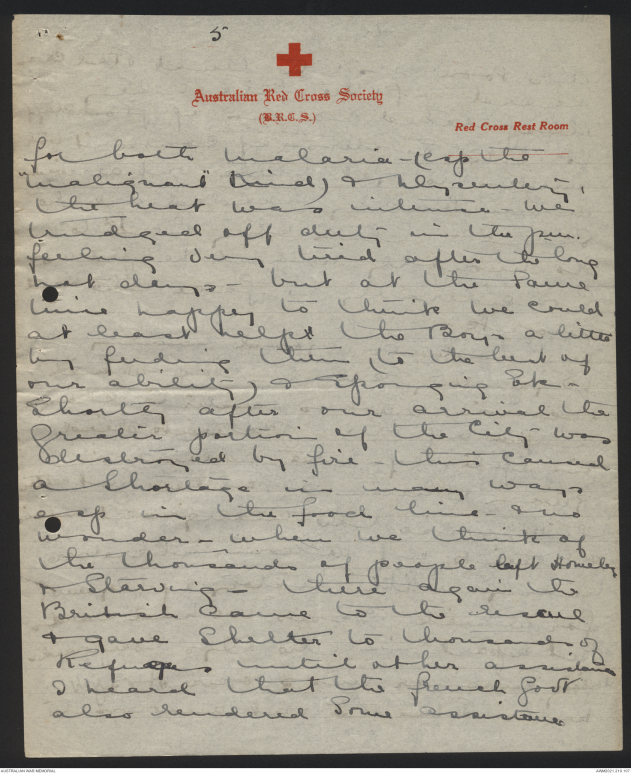 5
Australian Red Cross Society
(B.R.C.S.)
Red Cross Rest Room
for both malaria - (esp the
"malignant" kind) & dysentery,
the heat was intense - we
trudged off duty in the p.m.
feeling very tired after the long
hot days - but at the same
time happy to think we could
at least help the Boys a little
by feeding them (to the best of
our ability) & sponging Etc -
Shortly after our arrival the
Greater portion of the City was
destroyed by fire - this caused
a shortage in many ways
esp in the food line - & no
wonder - when we think of
the thousands of people left Homeless
& Starving - there again the
British came to the rescue
& gave Shelter to thousands of
Refugees until other assistance
I heard that the french Govt
also rendered Some assistance
AUSTRALIAN WAR MEMORIAL